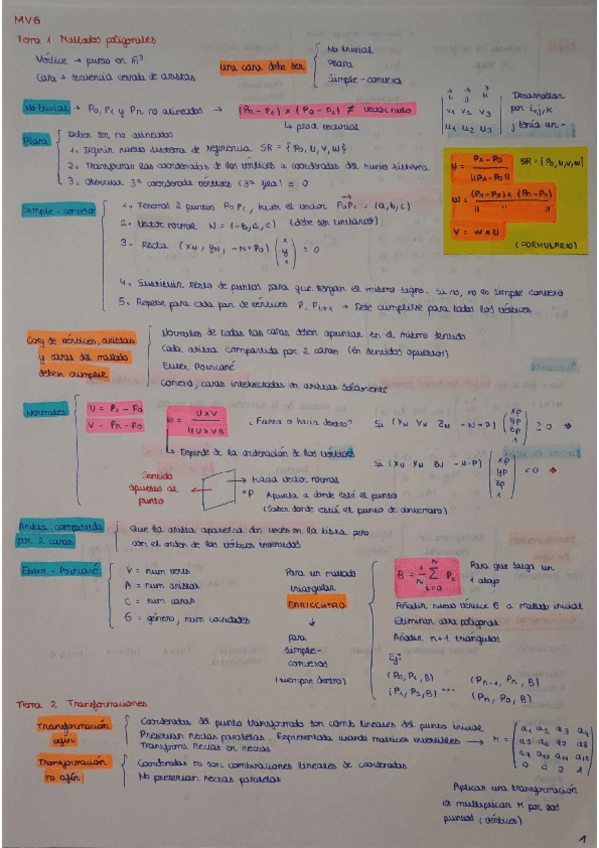 MVG
Tema 1 Mallados poligonales
Vértice → punto en R³
Cara → secuencia cerada de aristas
una cara debe ser
No trivial
Plana
Simple-conexa
No trivial → P0, P1 y Pn no alineados → (Pn - P1) × (P0 - P1) ≠ vector nulo
↳ prod vectorial
i j k
v1 v2 v3
u1 u2 u3
Desarrollar
por i, j, k
j tenía un -
Plana
Deben ser no alineados
1. Definir nuevo sistema de referencia SR = {P0, U, V, W}
2. Transformar las coordenadas de los vértices a coordenadas del nuevo sistema
3. Observar 3ª coordenada vértices (3ª fila) = 0
U = P1 - P0 / ||P1 - P0||
SR = {P0, U, V, W}
W = (P1 - P0) × (Pn - P0) / || ||
V = W × U
(FORMULARIO)
Simple-conexa
1. Tenemos 2 puntos P0 P1, hacen el vector P0P1 = (a, b, c)
2. Vector normal N = (-b, a, c) (debe ser unitario)
3. Recta (XN, YN, -N·P0) (x y 1) = 0
4. Sustituir resto de puntos para que tengan el mismo signo. Si no, no es simple conexa
5. Repetir para cada par de vértices Pi Pi+1 → Debe cumplirse para todos los vértices
Conj de vértices, aristas
y caras del mallado
deben cumplir
Normales de todas las caras deben apuntar en el mismo sentido
Cada arista compartida por 2 caras (en sentidos opuestos)
Euler Poincaré
Conexo, caras intersectadas en aristas solamente
Normales
U = P1 - P0
V = Pn - P0
N = U×V / ||U×V||
¿Fuera o hacia dentro?
Si (XN YN ZN -N·P) (xp yp zp 1) ≥ 0
↳ Depende de la ordenación de los vértices
Si (XN YN ZN -N·P) (xp yp zp 1) < 0
Sentido
opuesto al
punto
Hacia vector normal
•P Apunta a donde está el punto
(Saber donde está el punto de antemano)
Arista compartida
por 2 caras
Que la arista aparezca dos veces en la lista pero
con el orden de los vértices invertidos
Euler-Poincaré
V = num verts
A = num aristas
C = num caras
G = género, num cavidades
Para un mallado
triangular
BARICENTRO
↓
para
simple-
conexos
(siempre dentro)
B = 1/n Σ Pi
n
i=0
Para que salga un
1 abajo
Añadir nuevo vértice B a mallado inicial
Eliminar cara poligonal
Añadir n+1 triángulos
Ej:
(P0, P1, B) (Pn-1, Pn, B)
(P1, P2, B) ... (Pn, P0, B)
Tema 2 Transformaciones
Transformación
afín
Coordenadas del punto transformado son comb lineales del punto inicial
Preservan rectas paralelas. Representada usando matrices invertibles → M =
Transforma rectas en rectas
a1 a2 a3 a4
a5 a6 a7 a8
a9 a10 a11 a12
0 0 0 1
Transformación
no afín
Coordenadas no son combinaciones lineales de coordenadas
No preservan rectas paralelas
Aplicar una transformación
es multiplicar M por sus
puntos (vértices)
1